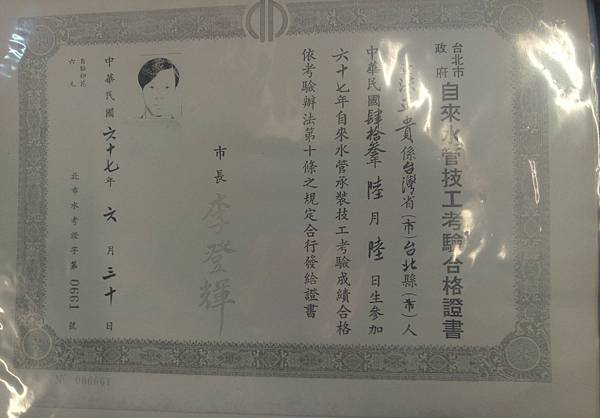 台北市政府自來水管技工考驗合格證書
貴係台灣省(市)台北縣(市)人
中華民國肆拾叁年陸月陸日生參加
六十七年自來水管承裝技工考驗成績合格
依考驗辦法第十條之規定合行發給證書
市長 李登輝
中華民國六十七年六月三十日
北市水考證字第0661號
No 000661